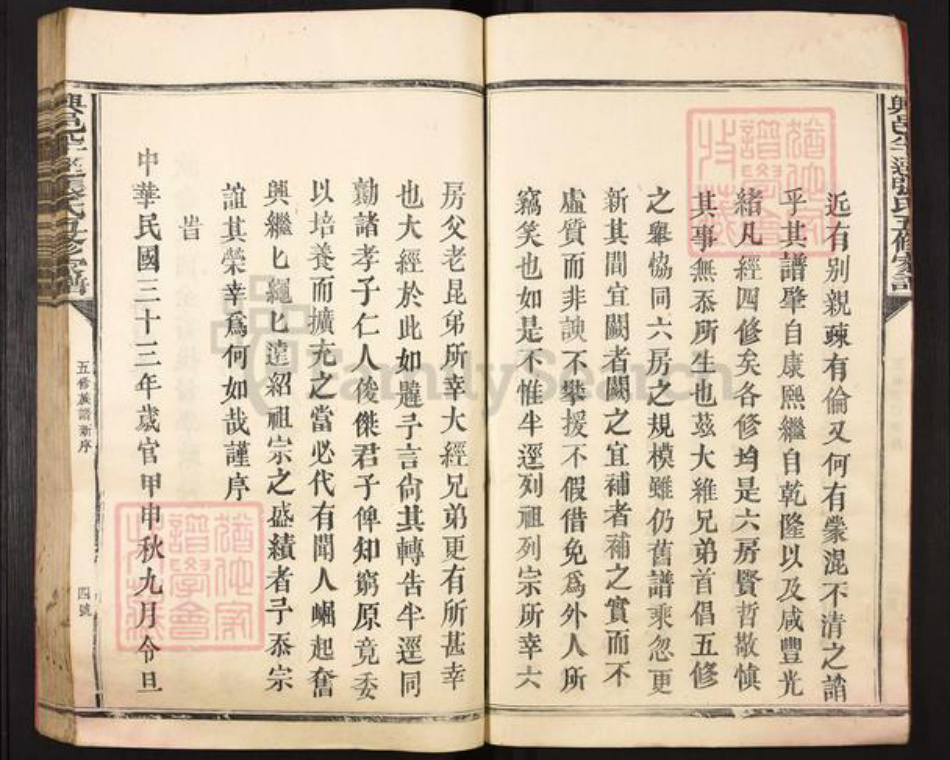 近有别親疎有倫又何有蒙混不清之誚
乎其譜肇自康熙繼自乾隆以及咸豐光
緒凡經四修矣各修均是六房賢哲敬慎
其事無忝所生也茲大維兄弟首倡五修
之舉恊同六房之規模雖仍舊譜乘忽更
新其間宜闕者闕之宜補者補之實而不
虛質而非諛不攀援不假借免爲外人所
竊笑也如是不惟半逕列祖列宗所幸六
房父老昆弟所幸大經兄弟更有所甚幸
也大經於此如聽予言尙其轉告半逕同
勷諸孝子仁人俊傑君子俾知窮原竟委
以培養而擴充之當必代有聞人崛起奮
興繼匕繩匕達紹祖宗之盛績者予忝宗
誼其榮幸爲何如哉謹序
旹
中華民國三十三年歲官甲申秋九月令旦
五修族譜新序
四號
FamilySearch